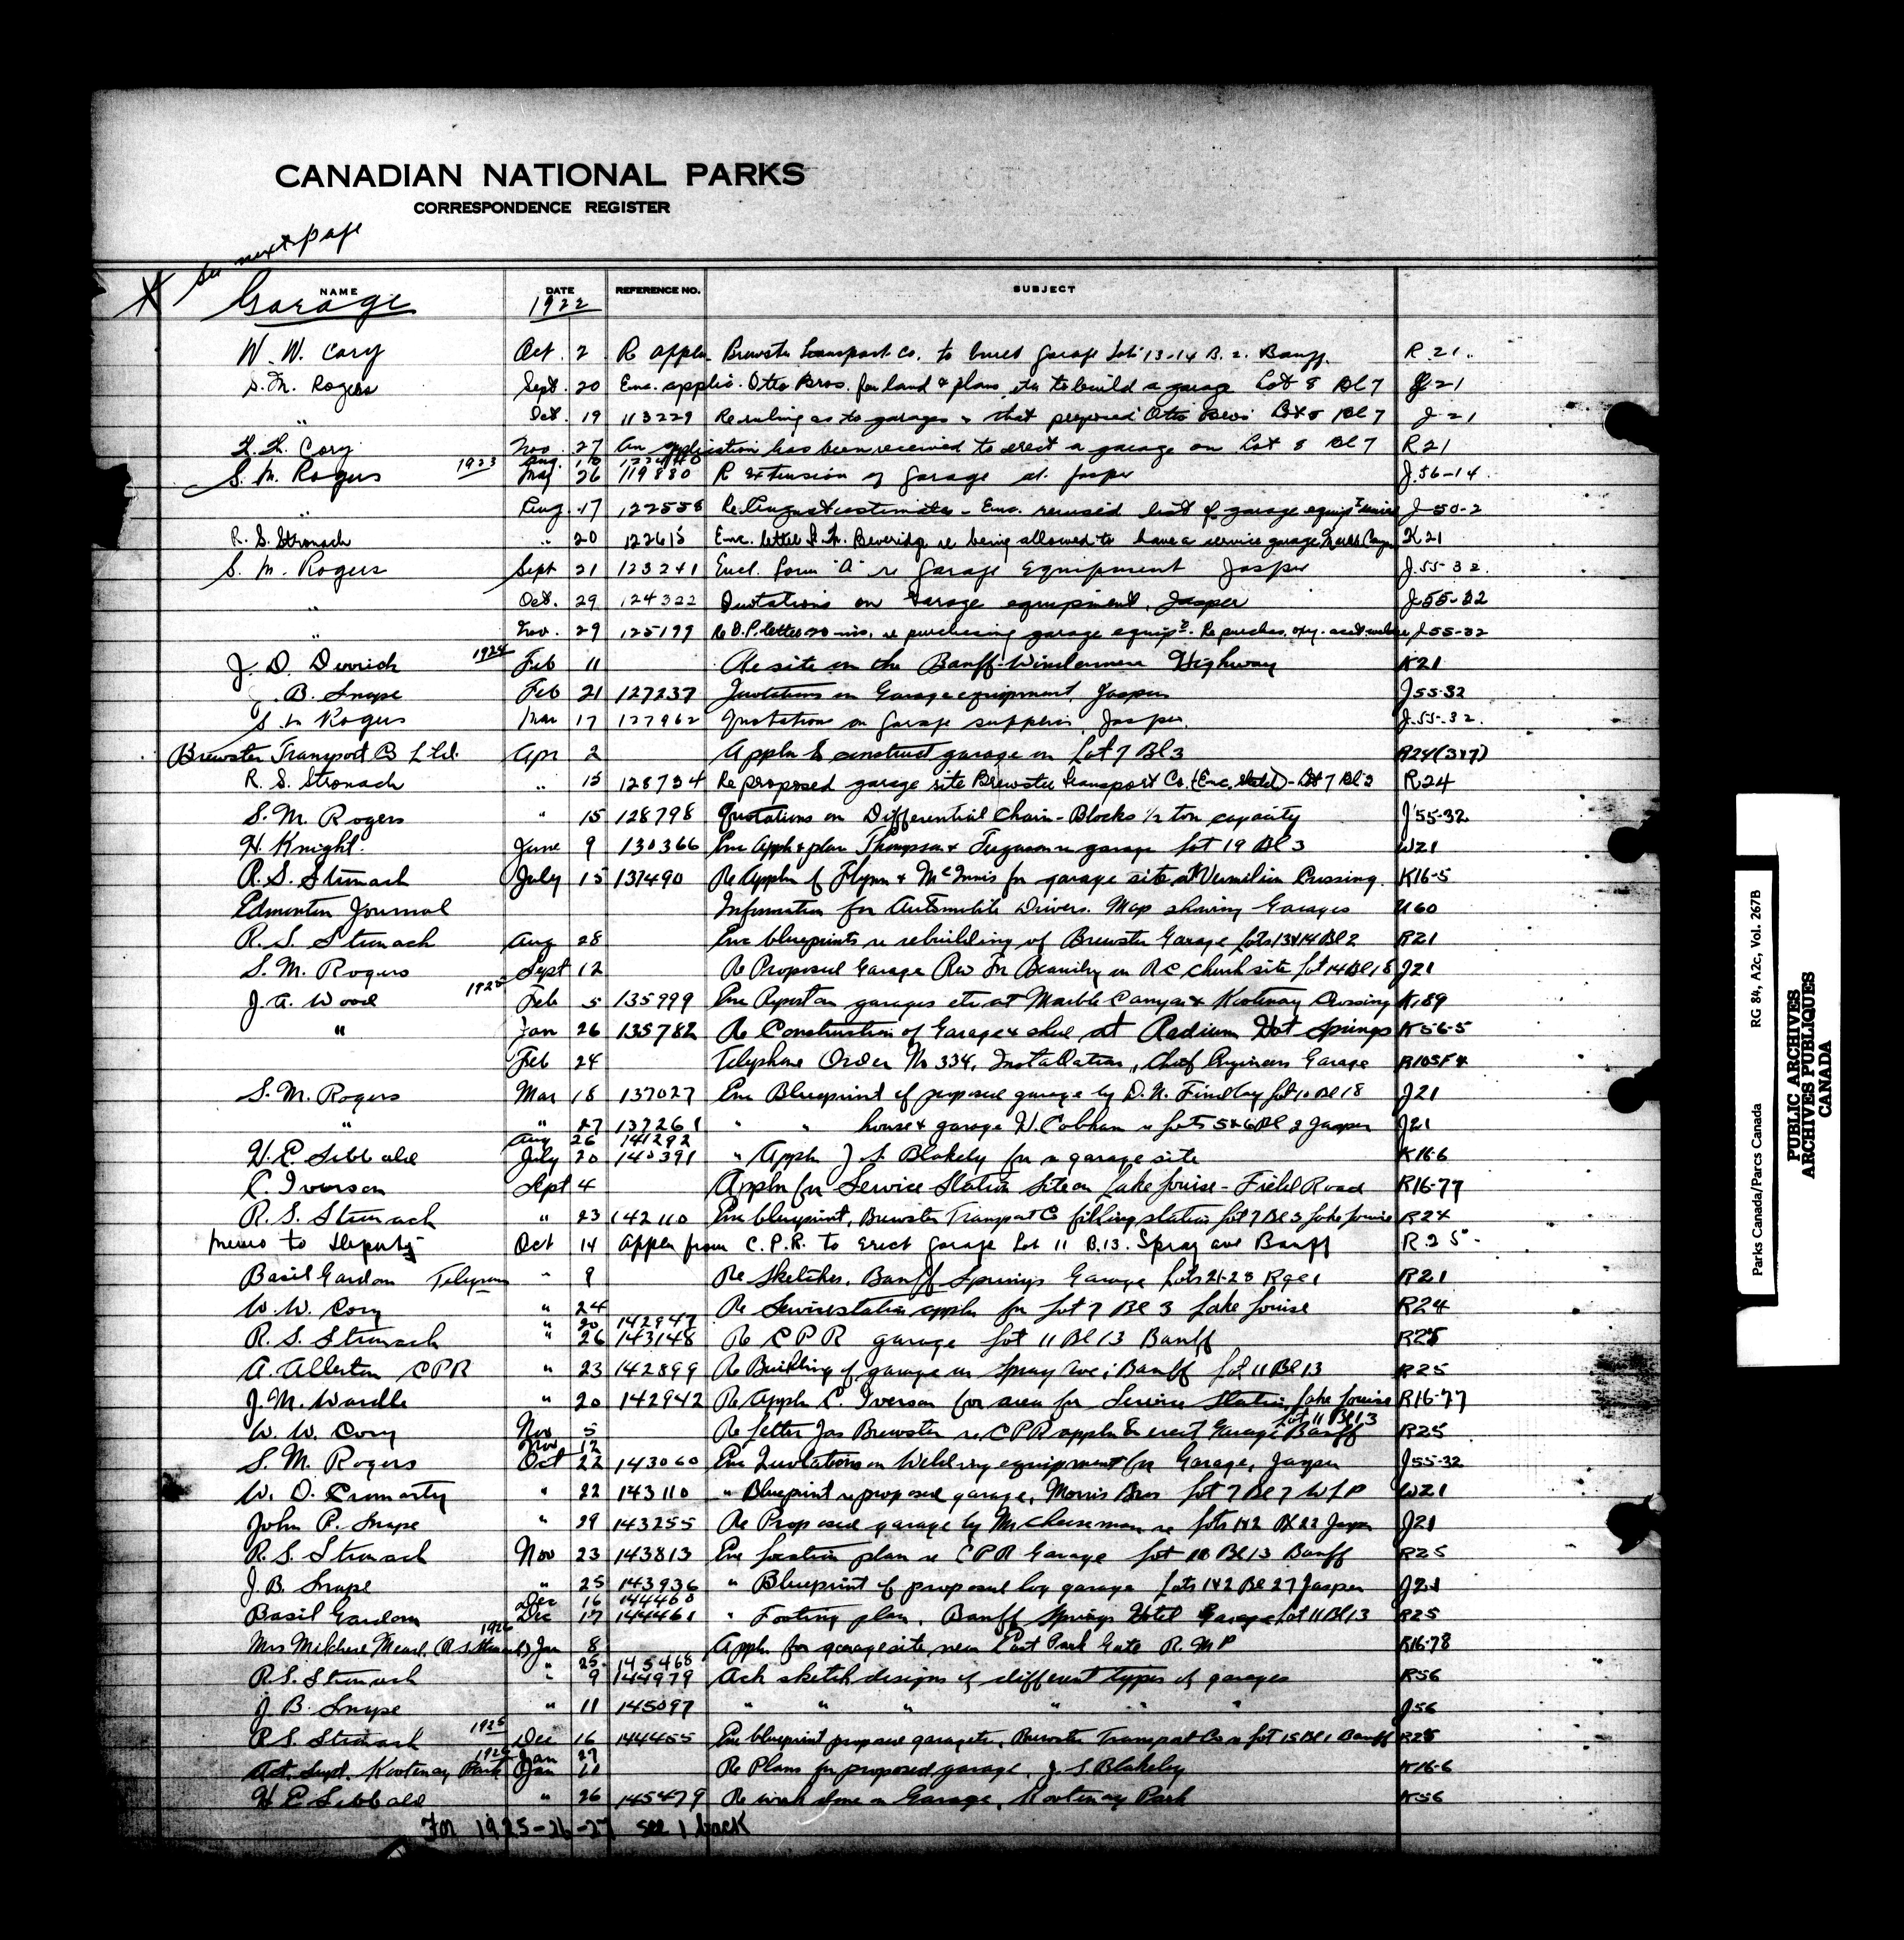 CANADIAN NATIONAL PARKS
CORRESPONDENCE REGISTER
See next page
X
NAME DATE REFERENCE NO. SUBJECT
Garage 1922
W. W. Cory Oct. 2 R appln Brewster Transport Co. to build garage Lots 13-14 B. 2. Banff. R.21.
S. M. Rogers Sept. 20 Enc. applic. Otto Bros. for land & plans, etc to build a garage Lot 8 Bl 7 J.21
" Oct. 19 113229 Re ruling as to garages & that proposed Otto Bros' Lot 8 Bl 7 J-21
Cory Nov. 27 An application has been received to erect a garage on Lot 8 Bl 7 R21
Aug.
S. M. Rogers 1923 May 26 119880 R extension of Garage at Jasper J.56-14.
" Aug. 17 122558 Re August estimates - Enc. revised list of garage equipt J-50-2
R. S. Stronach " 20 122615 Enc. letter Beveridge re being allowed to have a service garage Marble Canyon K21
S. M. Rogers Sept 21 123241 Encl. form "A" re Garage Equipment Jasper J.55-32.
" Oct. 29 124322 Quotations on Garage equipment, Jasper J-55-32
" Nov. 29 125199 Re D.P. letter 20 ins. re purchasing garage equipt. Re purchas. oxy. J-55-32
J. D. Derrick 1924 Feb 11 Re site on the Banff-Windermere Highway K21
J. B. Snape Feb 21 127237 Quotations on Garage equipment, Jasper J55-32
S. M Rogers Mar 17 127962 Quotations on Garage supplies, Jasper. J.55-32.
Brewster Transport Co Ltd. Apr 2 Appln to construct garage on Lot 7 Bl 3 R24(3x7)
R. S. Stronach " 15 128734 Re proposed garage site Brewster Transport Co. - Lot 7 Bl 3 R24
S. M. Rogers " 15 128798 Quotations on Differential Chain-Blocks 1/2 ton capacity J55-32
H. Knight. June 9 130366 Enc Appln & plan Thompson & Ferguson re garage Lot 19 Bl 3 W21
R. S. Stronach July 15 131490 Re Appln of Flynn & McInnis for garage site at Vermilion Crossing. K16-5
Edmonton Journal Information for Automobile Drivers. Map showing Garages U60
R. S. Stronach Aug 28 Enc blueprints re rebuilding of Brewster Garage Lots 13&14 Bl 2 R21
S. M. Rogers Sept 12 Re Proposed Garage Rev Fr on RC Church site Lot 14 Bl 18 J21
J. A. Wood 1925 Feb 5 135999 Enc Report on garages etc at Marble Canyon & Kootenay Crossing K189
" Jan 26 135782 Re Construction of Garage & shed at Radium Hot Springs K56-5
Feb 24 Telephone Order No 334, Installation, Chief Engineers Garage
S. M. Rogers Mar 18 137027 Enc Blueprint of proposed garage by D. N. Findlay Lot 10 Bl 18 J21
" " 27 137261 " " house & garage W. Cobham re Lots 5&6 Bl 2 Jasper J21
Aug 26 141292
H. E Sibbald July 20 140391 " Appln J. S. Blakely for a garage site K16-6
C. Iverson Sept 4 Appln for Service Station Site on Lake Louise - Field Road R16-77
R. S. Stronach " 23 142110 Enc blueprint, Brewster Transport Co filling station Lot 7 Bl 3 Lake Louise R24
Memo to Deputy Oct 14 Appln from C.P.R. to erect garage Lot 11 B.13. Spray ave Banff R.25.
Basil Gardom Telegram " 9 Re Sketches, Banff Springs Garage Lots 21-28 Rge 1 R21
W. W. Cory " 24 Re Service station appln for Lot 7 Bl 3 Lake Louise R24
" 20 142947
R. S. Stronach " 26 143148 Re C P R garage Lot 11 Bl 13 Banff R25
A. Allerton CPR " 23 142899 Re Building of garage on Spray Ave; Banff Lot 11 Bl 13 R25
J. M. Wardle " 20 142942 Re Appln C. Iverson for area for Service Station, Lake Louise R16-77
W. W. Cory Nov 5 Re Letter Jas Brewster re CPR appln to erect Garage Banff Lot 11 Bl 13 R25
Nov 12
S. M. Rogers Oct 22 143060 Enc Quotations on Welding equipment for Garage, Jasper J55-32
W. D. Cromarty " 22 143110 " Blueprint re proposed garage, Morris Bros Lot 7 Bl 7 WLP W21
John P. Snape " 29 143255 Re Proposed garage by Mr Cheeseman re Lots 1&2 Bl 22 Jasper J21
R. S. Stronach Nov 23 143813 Enc Location plan re CPR Garage Lot Bl 13 Banff R25
J. B. Snape " 25 143936 " Blueprint of proposed log garage Lots 1&2 Bl 27 Jasper J21
Dec 16 144460
Basil Gardom Dec 17 144461 " Footing plan, Banff Springs Hotel Garage Lot 11 Bl 13 R25
Mrs (R S Stronach) 1926 Jan 8 Appln for garage site near East Park Gate R.M.P R16-78
" 25. 145468
R. S. Stronach " 9 144979 Ack sketch designs of different types of garages R56
J B. Snape " 11 145097 " " " " " " J56
R S. Stronach 1925 Dec 16 144455 Enc blueprint proposed garage etc, Brewster Transport Co re Lot 15 Bl 1 Banff R25
1926 Jan 27
Act. Supt. Kootenay Park Jan Re Plans for proposed garage, J. S. Blakeley K16-6
H E Sibbald " 26 145479 Re work done on Garage, Kootenay Park K56
For 1925-26-27 see 1 back
Parks Canada/Parcs Canada RG 84, A2c, Vol. 267B
PUBLIC ARCHIVES
ARCHIVES PUBLIQUES
CANADA